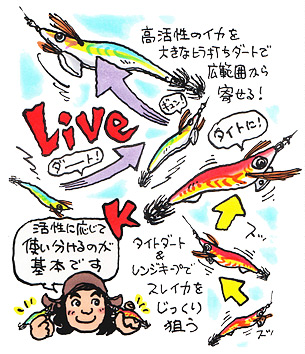 高活性のイカを
大きなヒラ打ちダートで
広範囲から
寄せる！
ギュン
Live
ダート！
タイトに！
K
活性に応じて
使い分けるのが
基本です
タイトダート
&
レンジキープで
スレイカを
じっくり
狙う
ズッ
ズッ